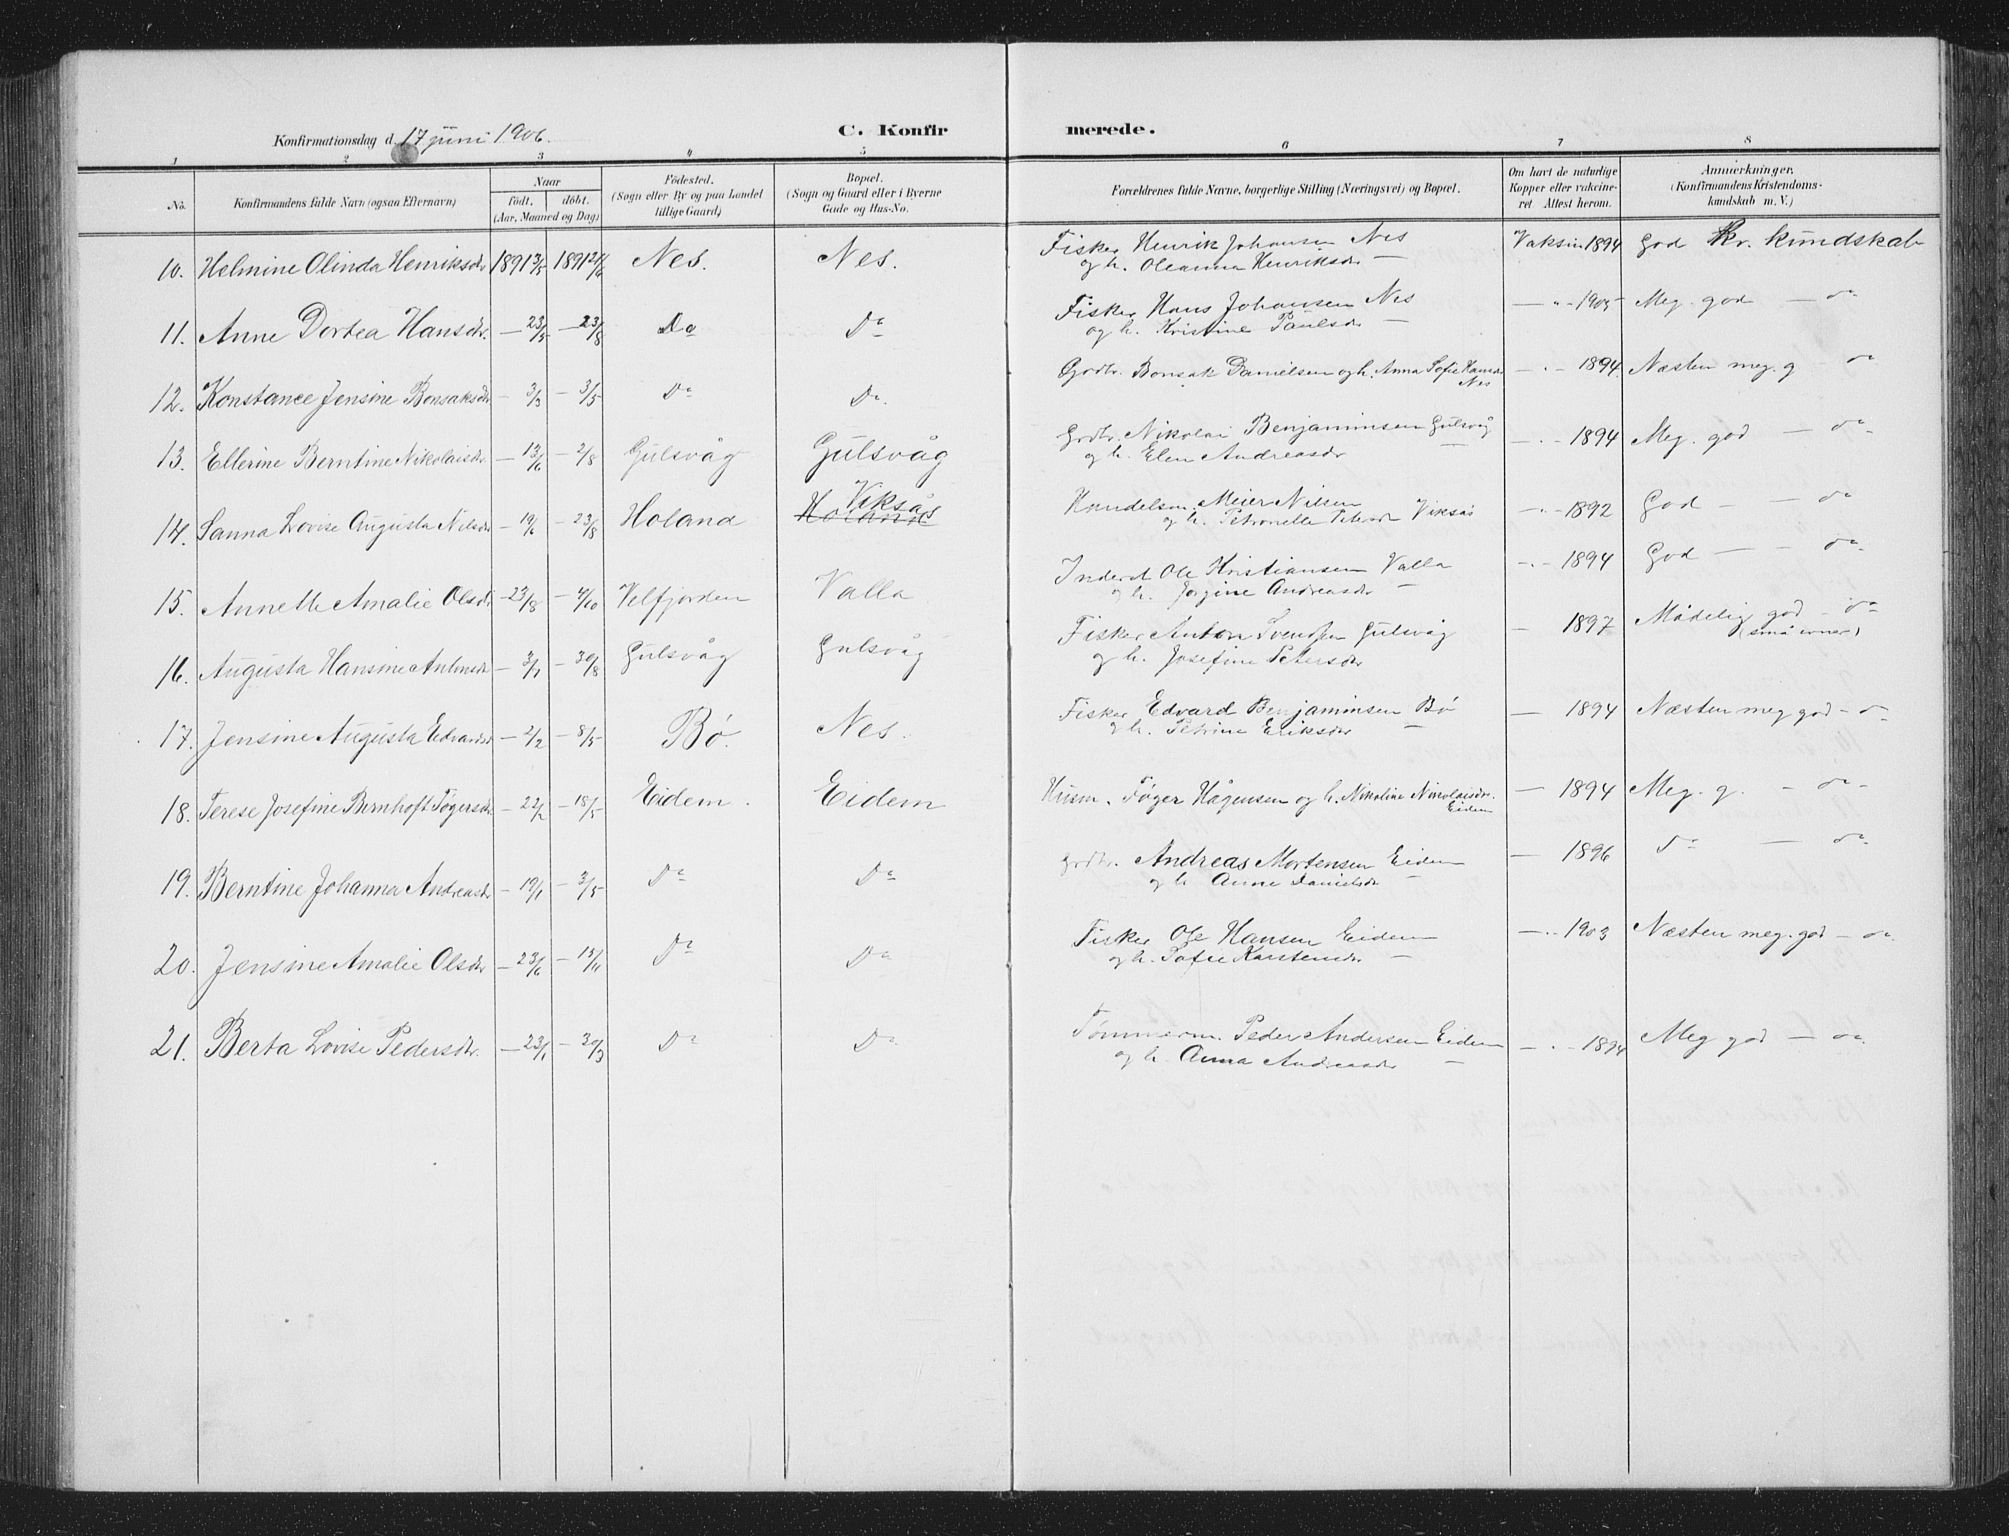 Konfirmationsdag d. 17 juni 1906.
C. Konfirmerede.
1 2 3 4 5 6 7 8
No.
Konfirmandens fulde Navn (ogsaa Efternavn)
Naar
födt. döbt.
(Aar, Maaned og Dag)
Födested.
(Sogn eller By og paa Landet
tillige Gaard)
Bopæl.
(Sogn og Gaard eller i Byerne
Gade og Hus-No.
Forældrenes fulde Navne, borgerlige Stilling (Næringsvei) og Bopæl.
Om havt de naturlige
Kopper eller vakcine-
ret. Attest herom.
Anmærkninger.
(Konfirmandens Kristendoms-
kundskab m. V.)
10. Helmine Olinda Henriksdr 1891 3/5 1891 21/6 Nes. Nes. Fisker Henrik Johansen Nes Vaksin 1894 God Kr. kundskab
og h. Oleanna Henriksdr —
11. Anne Dortea Hansdr. — 23/5 — 23/8 Do Do Fisker Hans Johansen Nes — " 1905 Meg. god — do
og h. Kristine Paulsdr —
12. Konstance Jensine Bonsaksdr — 3/3 — 3/5 Do Do. Gbdbr. Bonsak Danielsen og h. Anna Sofie Hansdr — " — 1894 Næsten meg. g — do
Nes
13. Ellerine Berntine Nikolaisdr — 13/6 — 2/8 Gulsvåg Gulsvåg Grdbr. Nikolai Benjaminsen Gulsvåg — " — 1894 Meg. god — do
og h. Elen Andreasdr —
14. Sanna Lovise Augusta Nilsdr — 19/6 — 23/8 Holand Viksås Handelsm. Meier Nilsen — " — 1892 God — — do
Holand
og h. Petronelle Petersdr Viksås
15. Annette Amalie Olsdr — 23/8 — 4/10 Velfjorden Valla Inderst Ole Kristiansen Valla — " — 1894 God — — do
og h. Jorgine Andreasdr —
16. Augusta Hansine Antonsdr — 3/7 — 30/8 Gulsvåg Gulsvåg Fisker Anton Svendsen Gulsvåg — 1897 Mådelig god — do
(små evner)
og h. Josefine Petersdr
17. Jensine Augusta Edvardsdr — 2/2 — 8/5 Bø. Nes. Fisker Edvard Benjaminsen Bø — 1894 Næsten meg god — do
og h. Petrine Eriksdr —
18. Terese Josefine Bernhoft Tøgersdr. — 22/2 — 18/5 Eidem. Eidem Husm. Tøger Hågensen og h. Nikoline Nikolaisdr. — 1894 Meg. g. — do
Eidem
19. Berntine Johanna Andreasdr — 19/1 — 3/5 Do Do Grdbr. Andreas Mortensen Eidem — 1896 do — do
og h Anne Danielsdr —
20. Jensine Amalie Olsdr — 23/6 — 15/11 Do Do Fisker Ole Hansen Eidem — " 1903 Næsten meg. god — do
og h. Sofie Karstensdr —
21. Berta Lovise Pedersdr. — 23/1 — 30/3 Do Do Tømmerm. Peder Andersen Eidem — " — 1894 Meg god — do
og h. Anna Andreasdr —